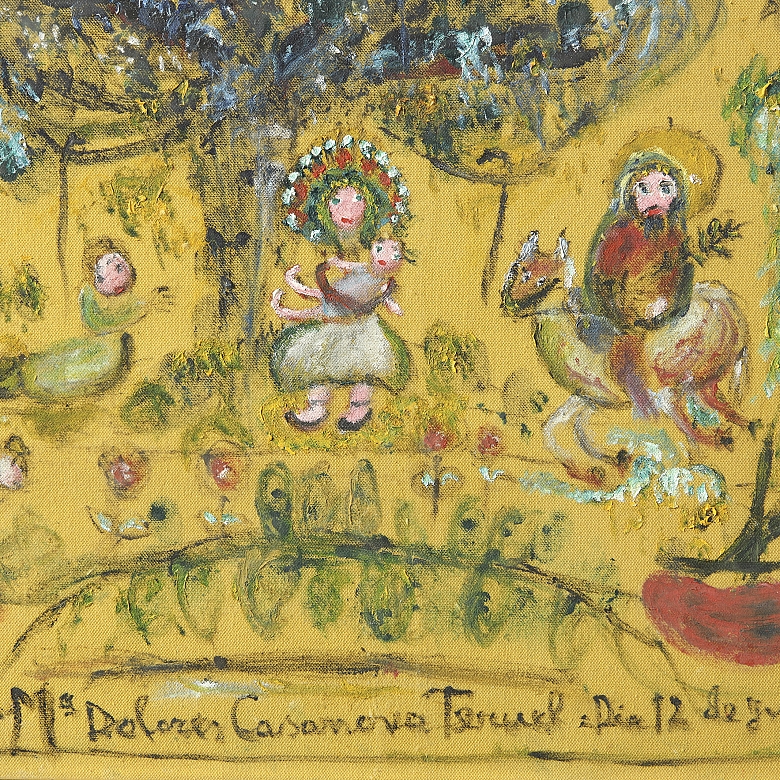 Mª Dolores Casanova Teruel : Dia 12 de